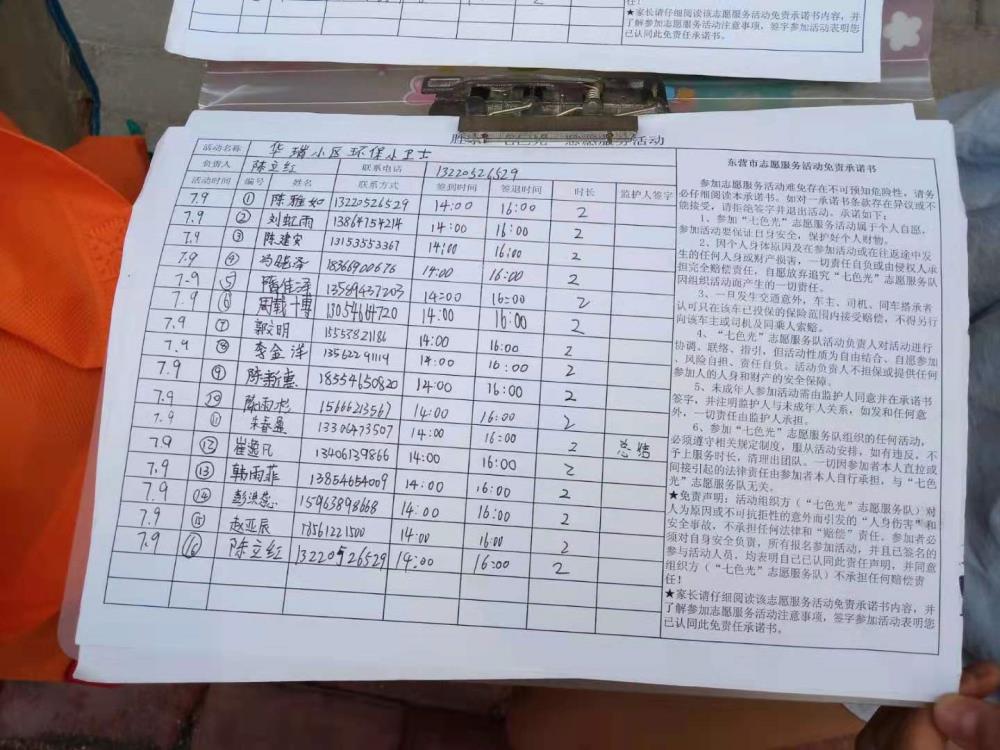 ★家长请仔细阅读该志愿服务活动免责承诺书内容，并
了解参加志愿服务活动注意事项，签字参加活动表明您
已认同此免责任承诺书。
志愿服务活动
活动名称 华瑞小区环保小卫士
负责人 陈立红 联系电话 13220526529
活动时间 编号 姓名 联系方式 签到时间 签退时间 时长 监护人签字
7.9 ① 陈雅如 13220526529 14:00 16:00 2
7.9 ② 刘虹雨 13864754214 14:00 16:00 2
7.9 ③ 陈建宾 13153553367 14:00 16:00 2
7.9 ④ 冯晓泽 18366900676 14:00 16:00 2
7.9 ⑤ 13589437203 14:00 16:00 2
7.9 ⑥ 13054664720 14:00 16:00 2
7.9 ⑦ 郭文明 15558821186 14:00 16:00 2
7.9 ⑧ 李金洋 13562291119 14:00 16:00 2
7.9 ⑨ 陈新惠 18554650820 14:00 16:00 2
7.9 ⑩ 陈雨杉 15666213567 14:00 16:00 2
7.9 ⑪ 13306473507 14:00 16:00 2
7.9 ⑫ 崔逸凡 13406139866 14:00 16:00 2 总结
7.9 ⑬ 韩雨菲 13854654009 14:00 16:00 2
7.9 ⑭ 15963898668 14:00 16:00 2
7.9 ⑮ 赵亚辰 18561221500 14:00 16:00 2
7.9 ⑯ 陈立红 13220526529 14:00 16:00 2
东营市志愿服务活动免责承诺书
参加志愿服务活动难免存在不可预知危险性，请务
必仔细阅读本承诺书。如对一承诺书条款存在异议或不
能接受，请拒绝签字并退出活动。承诺如下：
1、参加“七色光”志愿服务活动属于个人自愿，
参加活动要保证自身安全，保护好个人财物。
2、因个人身体原因及在参加活动或在往返途中发
生的任何人身或财产损害，一切责任自负或由侵权人承
担完全赔偿责任，自愿放弃追究“七色光”志愿服务队
因组织活动而产生的一切责任。
3、一旦发生交通意外，车主、司机、同车搭承者
认可只在该车已投保的保险范围内接受赔偿，不得另行
向该车主或司机及同乘人索赔。
4、“七色光”志愿服务队活动负责人对活动进行
协调、联络、指引，但活动性质为自由结合、自愿参加
、风险自担、责任自负。活动负责人不担保或提供任何
参加人的人身和财产的安全保障。
5、未成年人参加活动需由监护人同意并在承诺书
签字，并注明监护人与未成年人关系，如发和任何意
外，一切责任由监护人承担。
6、参加“七色光”志愿服务队组织的任何活动，
必须遵守相关规定制度，服从活动安排，如有违反，不
予上服务时长，清理出团队。一切因参加者本人直拉或
间接引起的法律责任由参加者本人自行承担，与“七色
光”志愿服务队无关。
★免责声明：活动组织方（“七色光”志愿服务队）对
人为原因或不可抗拒性的意外而引发的“人身伤害”和
安全事故，不承担任何法律和“赔偿”责任。参加者必
须对自身安全负责，所有报名参加活动，并且已签名的
参与活动人员，均表明自己已认同此责任声明，并同意
组织方（“七色光”志愿服务队）不承担任何赔偿责
任！
★家长请仔细阅读该志愿服务活动免责承诺书内容，并
了解参加志愿服务活动注意事项，签字参加活动表明您
已认同此免责任承诺书。